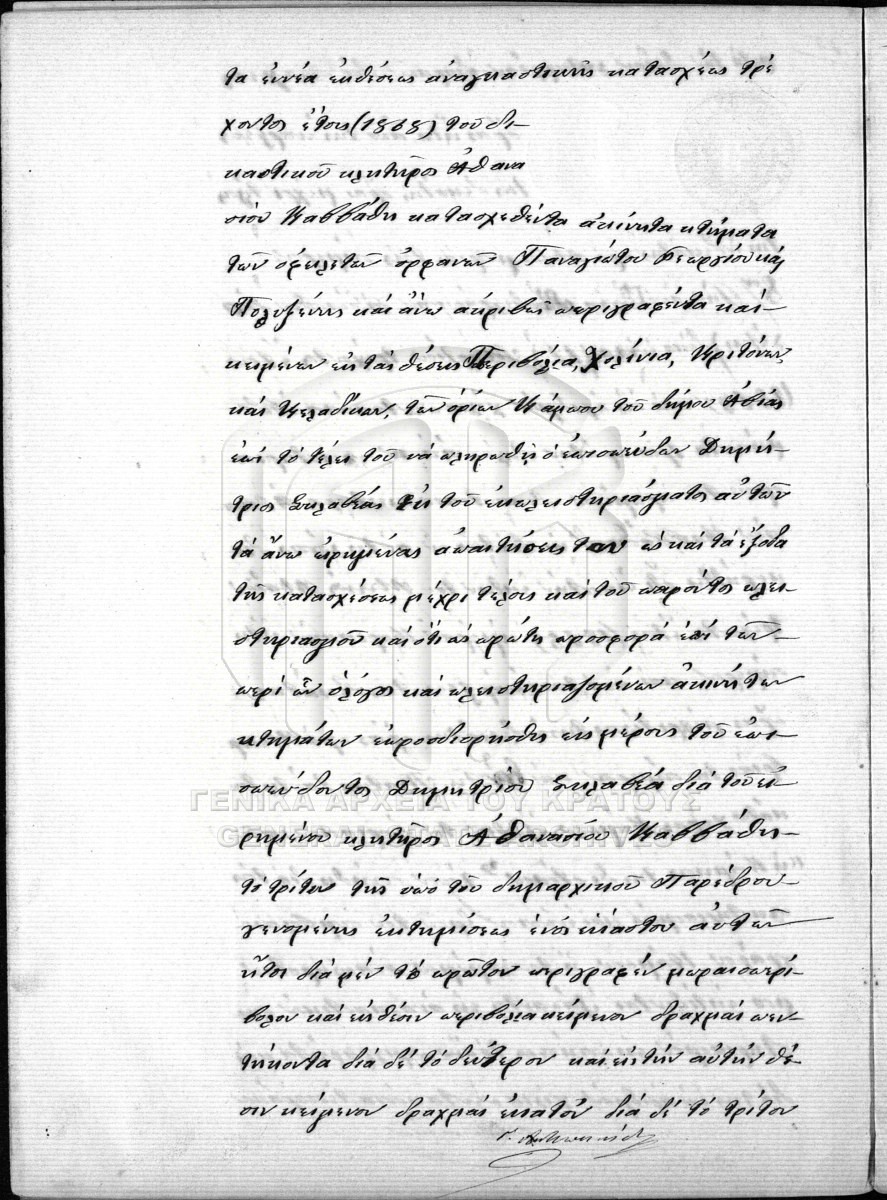 τα εννέα εκθέσεως αναγκαστικής κατασχέσεως τρέ
χοντος έτους (1868) του δι-
καστικού κλητήρος Αθανα
σίου Καββάθη κατασχεθέντα ακίνητα κτήματα
των οφειλετών ορφανών Παναγιώτου Γεωργίου και
Πολυξένης και άνω ακριβώς περιγραφέντα και-
κειμένων εις τας θέσεις Περιβόλια, Χιλίνια,
και Κελαδίκων, των ορίων Κάμπου του δήμου Αβίας
επί τω τέλει του να πληρωθή ο επισπεύδων Δημή-
τριος Σκλαβέας εκ του εκπλειστηριάσματος αυτών
τα άνω ειρημένας απαιτήσεις του ως και τα έξοδα
της κατασχέσεως μέχρι τέλους και του παρόντος πλει-
στηριασμού και ότι ως πρώτη προσφορά επί των-
περί ων ο λόγος και πλειστηριαζομένων ακινήτων
κτημάτων επροσδιορίσθη εις μέρους του επι-
σπεύδοντος Δημητρίου Σκλαβέα δια του ει-
ρημένου κλητήρος Αθανασίου Καββάθη-
το τρίτον της υπό του δημαρχικού Παρέδρου-
γενομένης εκτιμήσεως ενός εκάστου αυτών
ήτοι διά μεν το πρώτον περιγραφέν μωραιοπερί-
βολον και εις θέσιν περιβόλια κείμενον δραχμάς πεν-
τήκοντα διά δε το δεύτερον και εις την αυτήν θέ-
σιν κείμενον δραχμάς εκατόν διά δε το τρίτον
ΓΕΝΙΚΑ ΑΡΧΕΙΑ ΤΟΥ ΚΡΑΤΟΥΣ